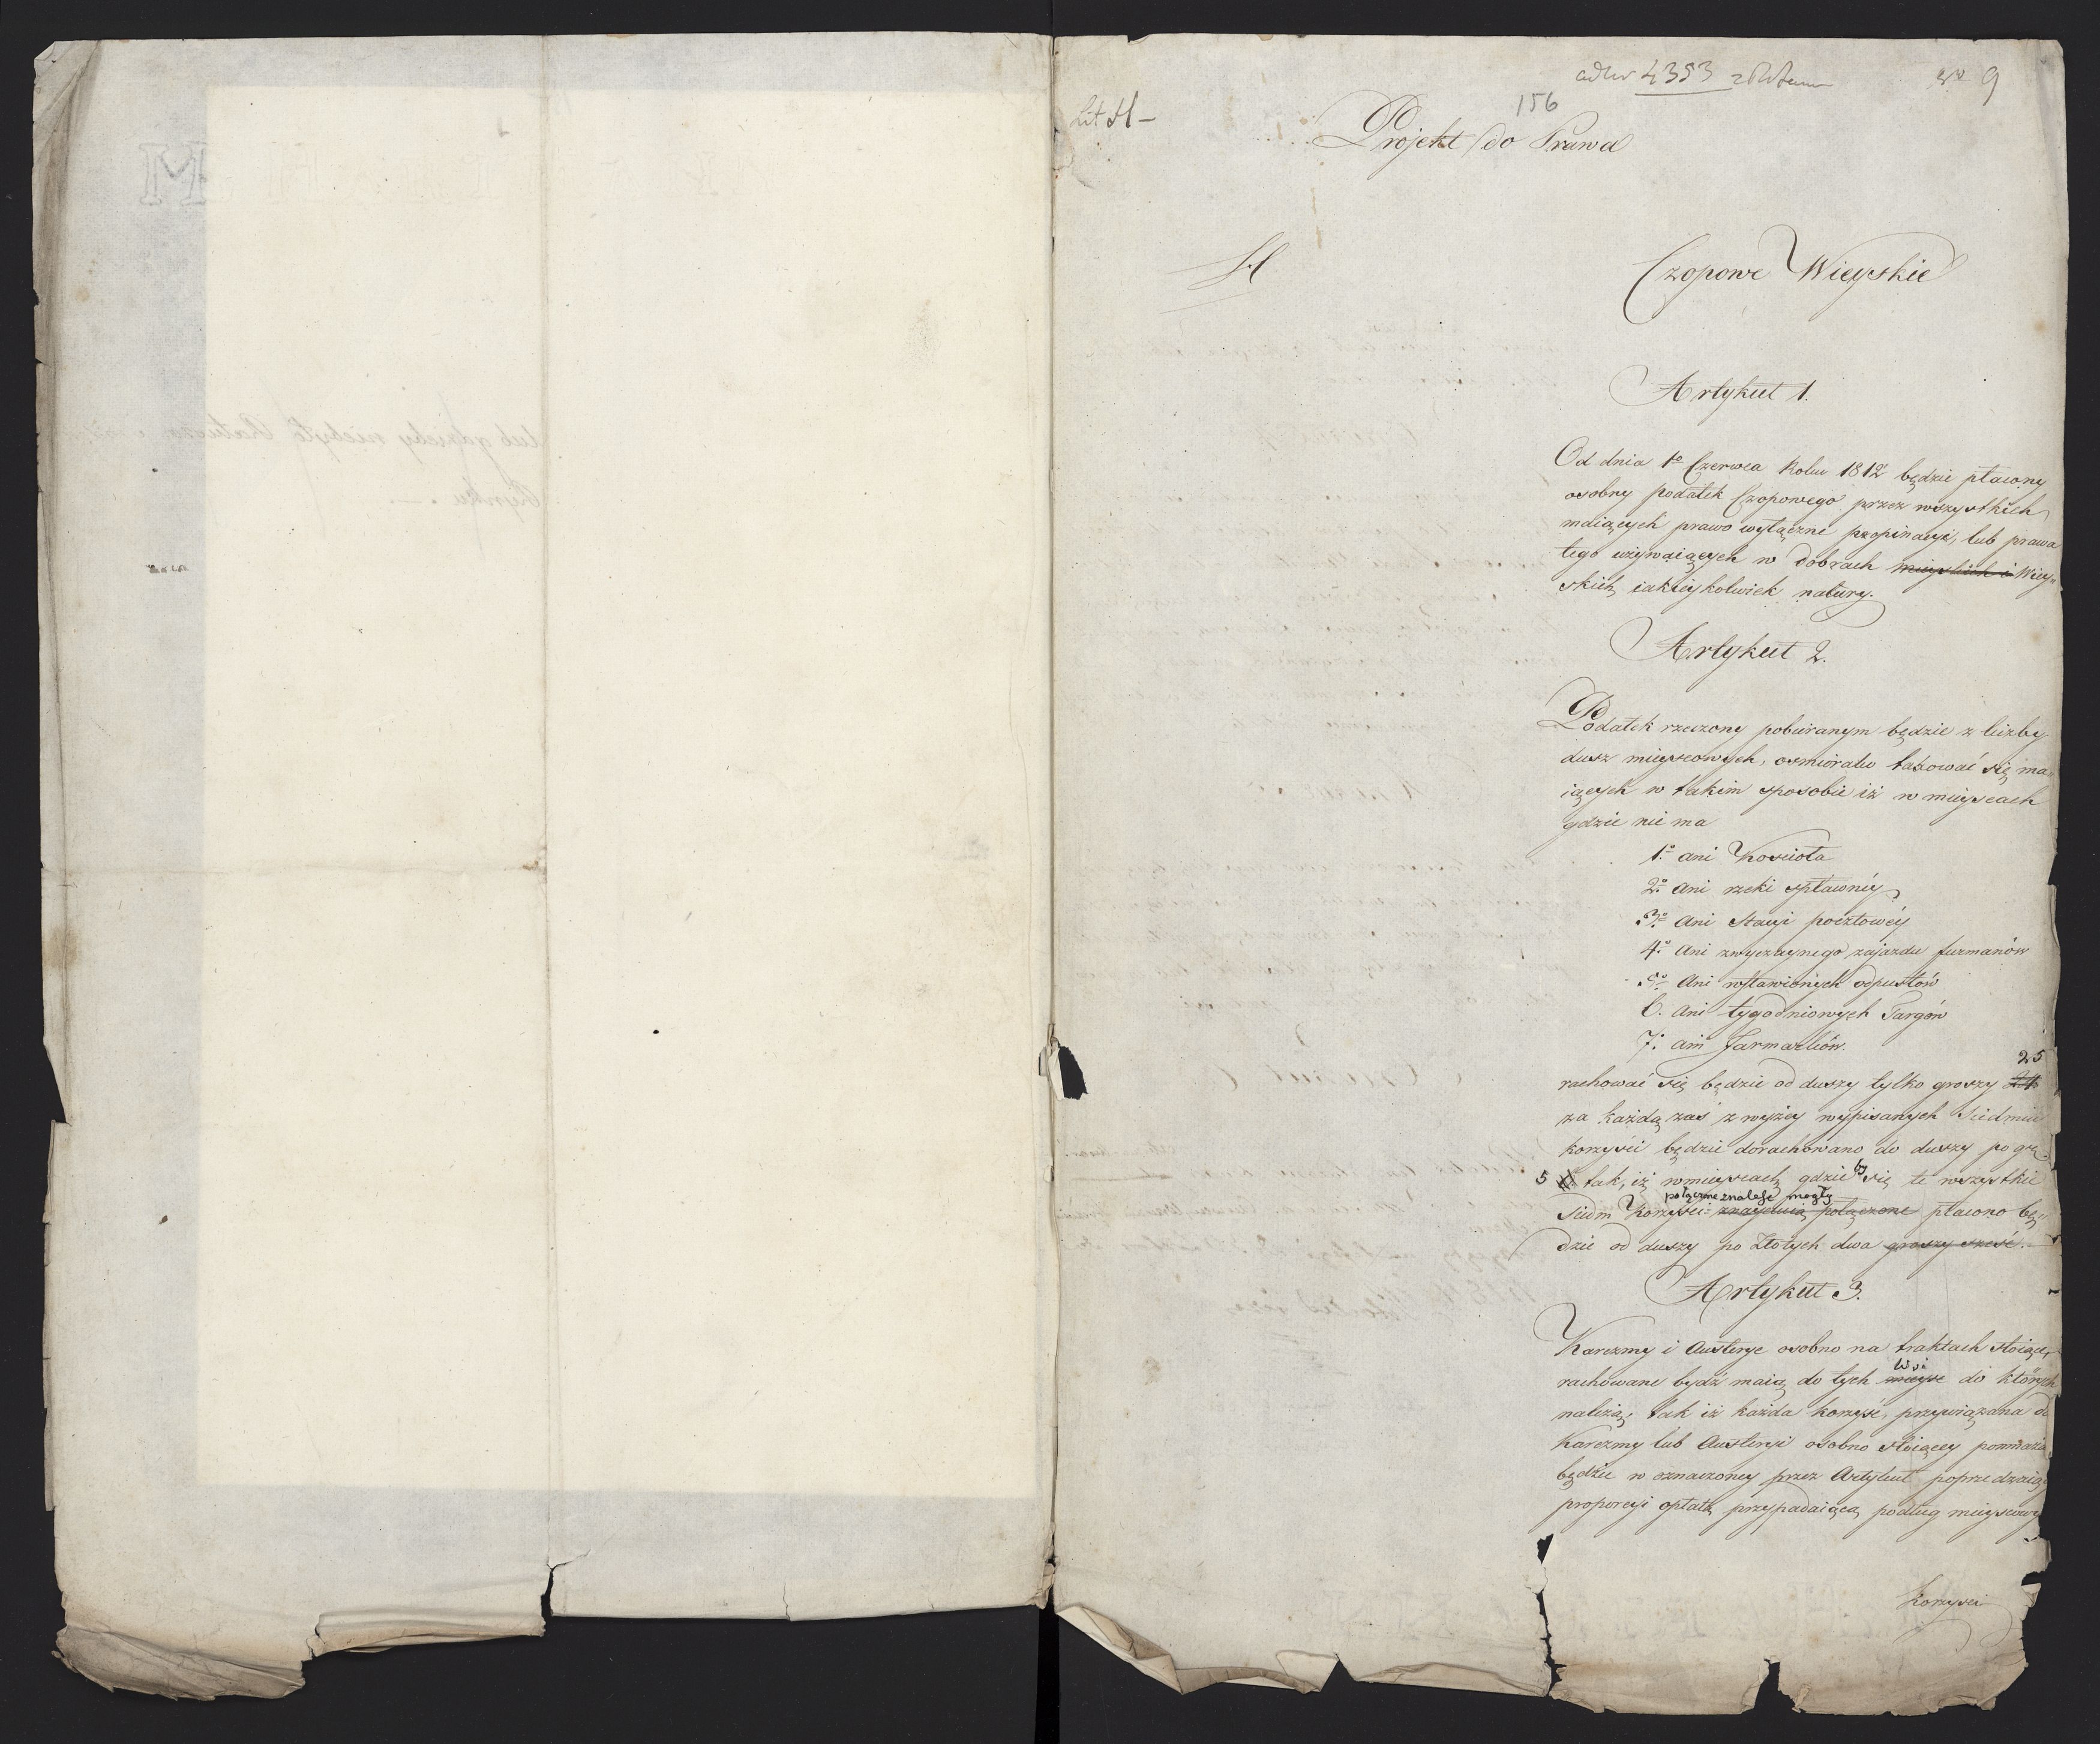 4353
9
156
Lit H –
Projekt do Prawa
H
Czopowe Wieyskie
Artykuł 1.
Od dnia 1o Czerwca Roku 1812 będzie płacony
osobny podatek Czopowego przez wszystkich
maiących prawo wyłączne propinacyi, lub prawa
tego używaiących w dobrach mieyskich i Wiey„
skich iakieykolwiek natury.
Artykuł 2.
Podatek rzeczony pobieranym będzie z liczby
dusz mieyscowych, ośmiorako taxować się ma„
iących w takim sposobie iż w mieyscach
gdzie nie ma
1o ani Kościoła
2o Ani rzeki spławnéy
3o Ani Stacyi pocztowéy
4o Ani zwyczaynego zajazdu furmanów
5o Ani wsławionych odpustów
6. Ani tygodniowych Targów
7o ani Jarmarków.
25
rachować się będzie od duszy tylko groszy 24
za każdą zaś z wyżey wypisanych Siedmiu
korzyści będzie dorachowano do duszy po gr.
5 6. tak, iż w mieyscach gdzie by się te wszystkie
połączone znaleść mogły
Siedm Korzyści znayduią połączone płacono bę„
dzie od duszy po Złotych dwa groszy sześć.
Artykuł 3.
Karczmy i Austerye osobno na traktach stoiące,
Wsi
rachowane bydź maią do tych mieysc do których
należą; tak iż każda korzyść, przywiązana do
Karczmy lub Austeryi osobno stoiącey pomnażać
będzie w oznaczoney przez Artykuł poprzedzaiący
proporcyi opłatę przypadaiącą podług mieyscowy
Korzyści